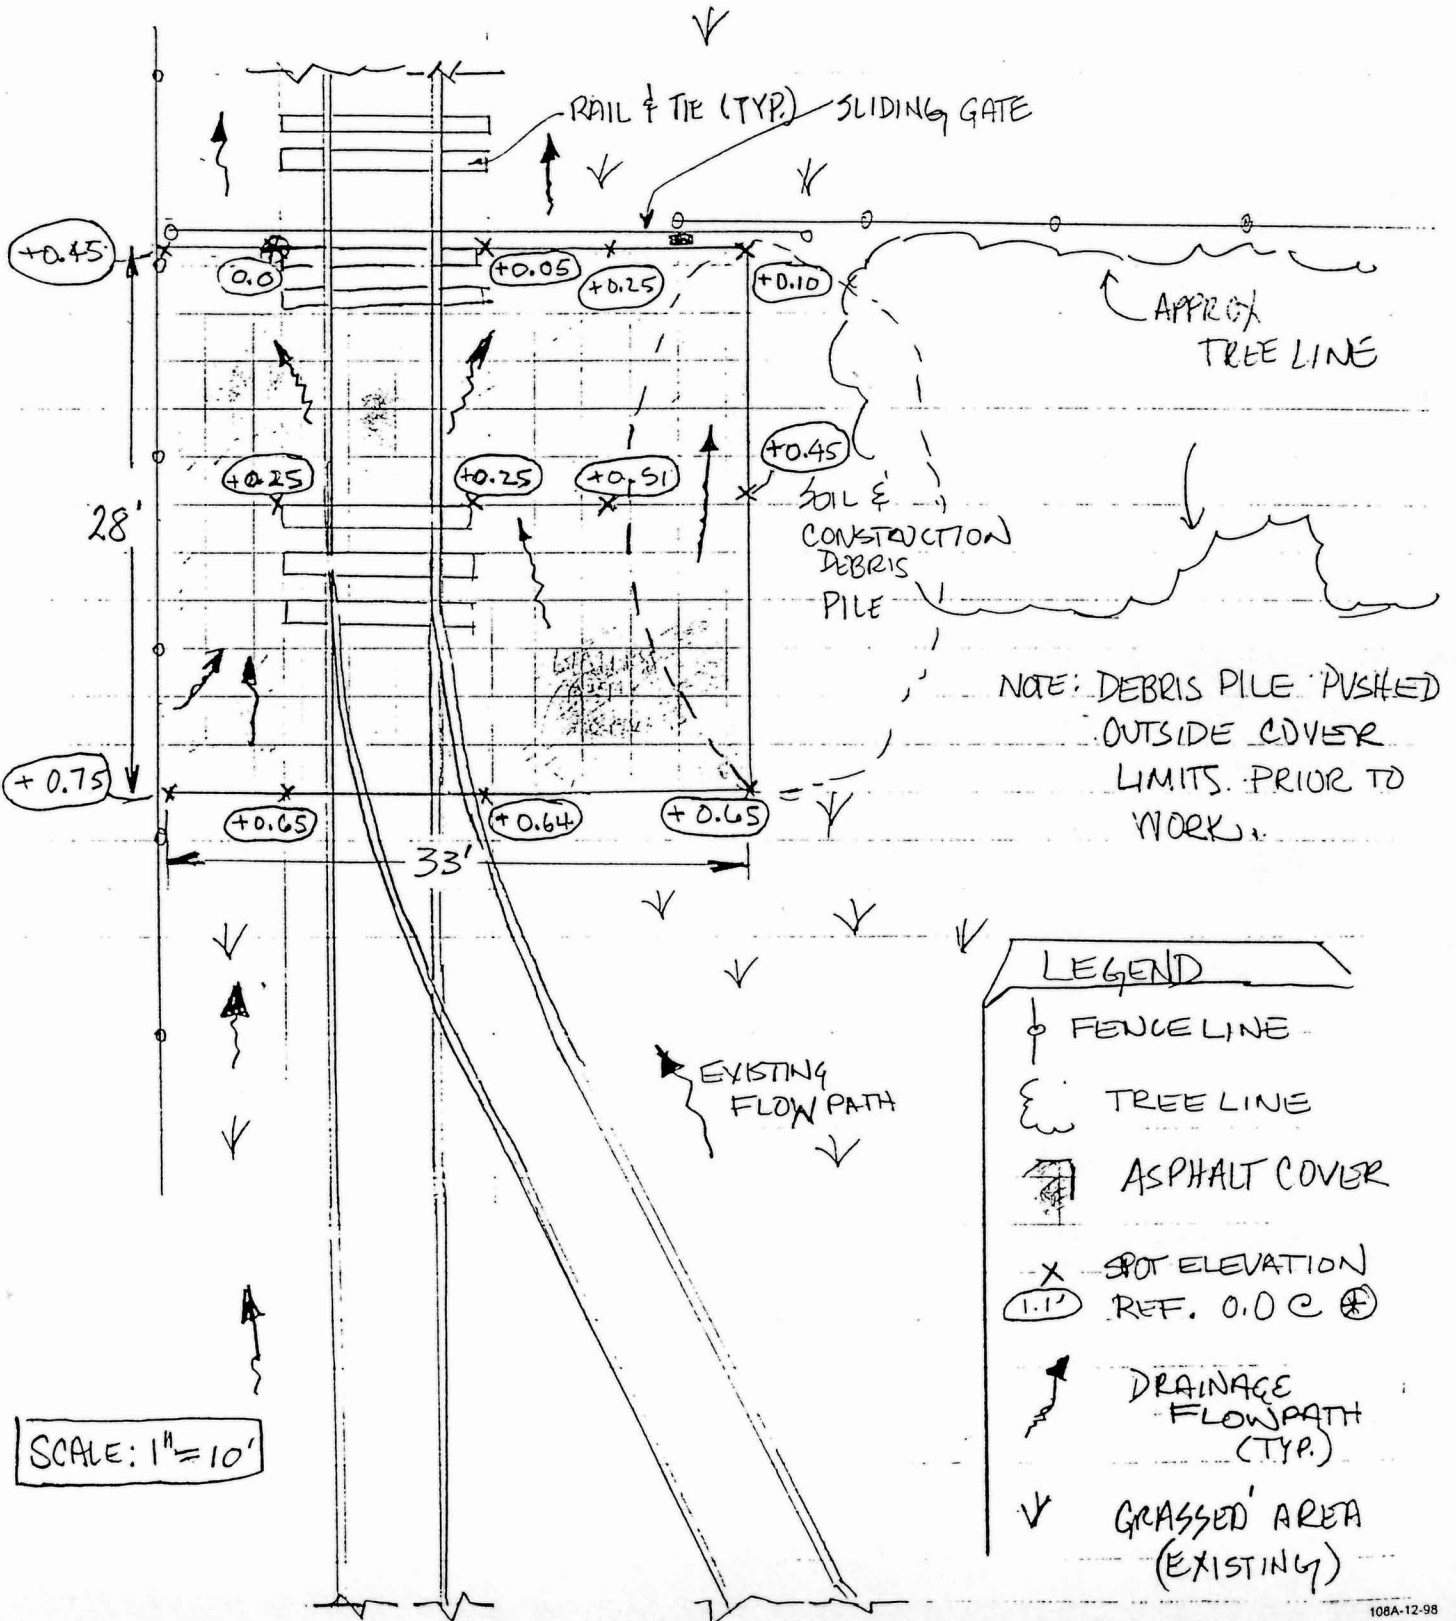 RAIL & TIE (TYP.)
SLIDING GATE
+0.45
0.0
+0.05
+0.25
+0.10
APPROX
TREE LINE
+0.25
+0.25
+0.51
+0.45
28'
SOIL &
CONSTRUCTION
DEBRIS
PILE
NOTE: DEBRIS PILE PUSHED
OUTSIDE COVER
LIMITS. PRIOR TO
WORK.
+0.75
+0.65
+0.64
+0.65
33'
LEGEND
FENCE LINE
TREE LINE
ASPHALT COVER
X SPOT ELEVATION
1.1' REF. 0.0 @
DRAINAGE
FLOWPATH
(TYP.)
GRASSED AREA
(EXISTING)
EXISTING
FLOW PATH
SCALE: 1"=10'
108A-12-98